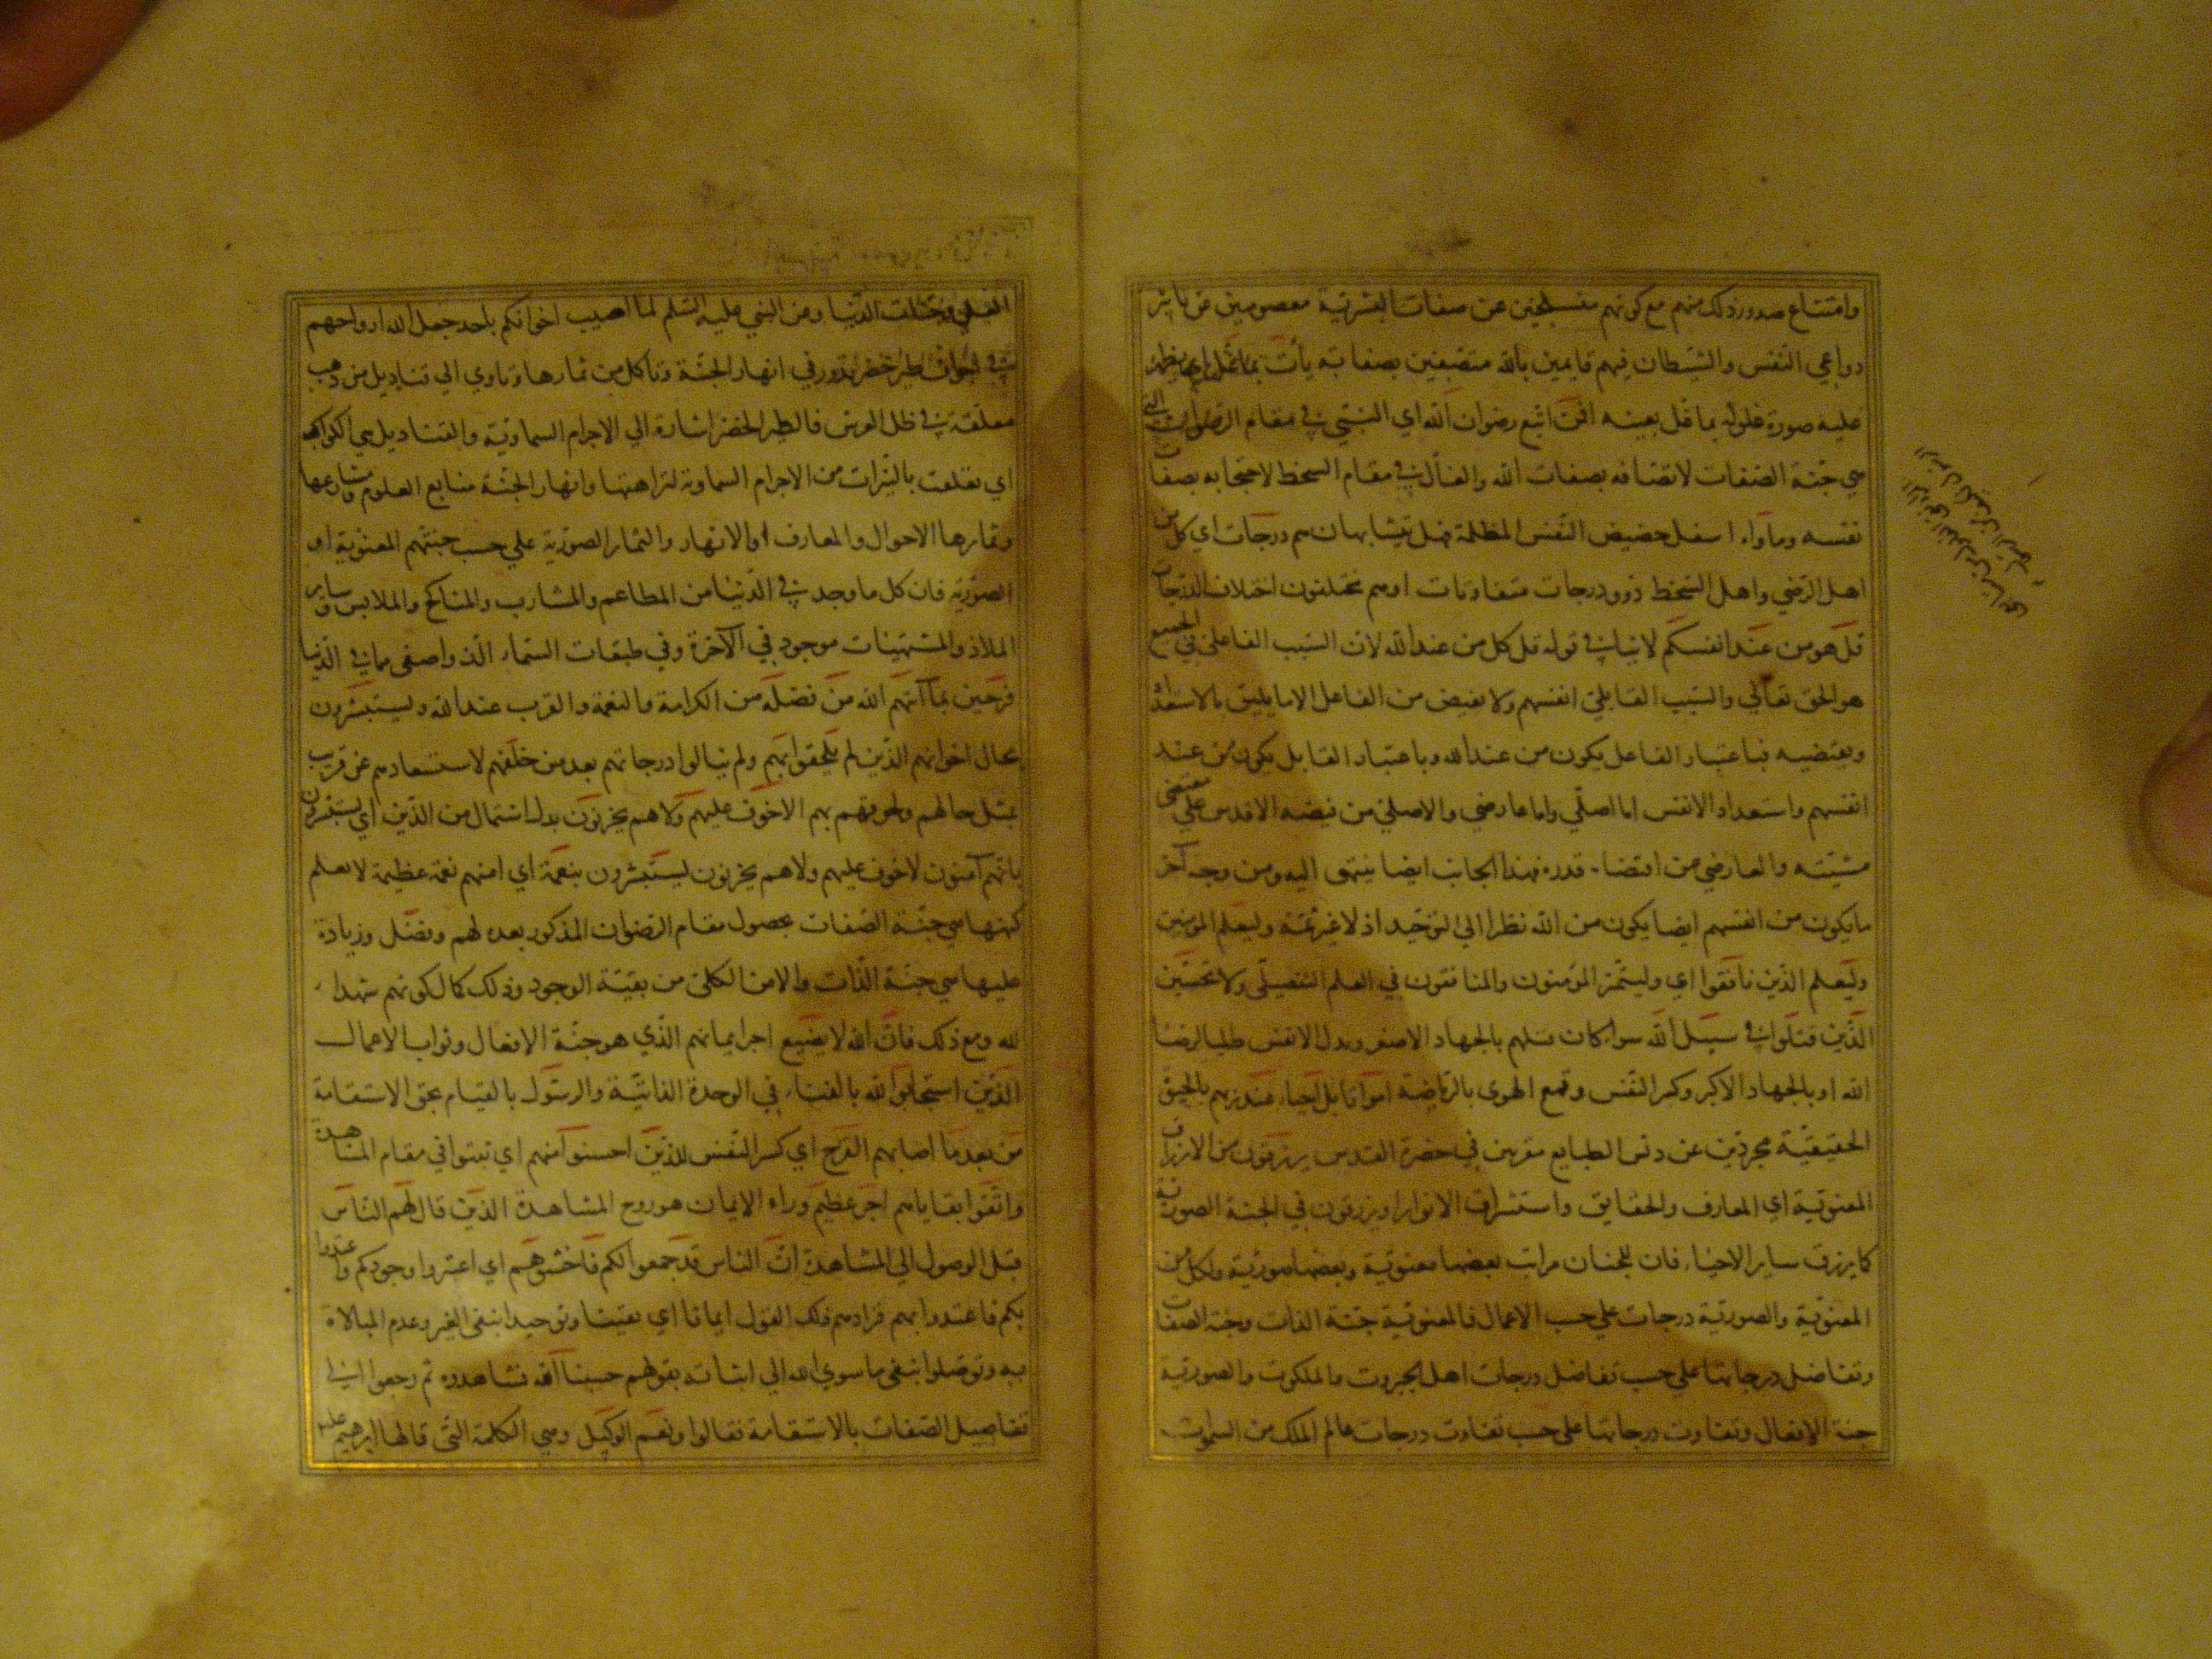 وامتناع صدور ذلك منهم مع كونهم منسلخين عن صفات البشرية معصومين عن تاثير
دواعي النفس والشيطان فيهم قايمين بالله متصفين بصفاته يات بما غل اي يظهر
عليه صورة غلوله بما غل بعينه افمن اتبع رضوان الله اي النبي في مقام الرضوان التي
هي جنة الصفات لاتصافه بصفات الله والغال في مقام السخط لاحتجابه بصفات
نفسه وماواه اسفل حضيض النفس المظلمة فهل يتشابهان هم درجات اي كل من
اهل الرضي واهل السخط ذوو درجات متفاوتات او هم مختلفون اختلاف الدرجات
قل هو من عند انفسكم لا ينافي قوله قل كل من عند الله لان السبب الفاعلي في الجميع
هو الحق تعالي والسبب القابلي انفسهم ولا يفيض من الفاعل الا ما يليق بالاستعداد
ويقتضيه فباعتبار الفاعل يكون من عند الله وباعتبار القابل يكون من عند
انفسهم واستعداد الانفس اما اصلي واما عارضي والاصلي من فيضه الاقدس علي مقتضي
مشيته والعارضي من اقتضاء قدره فهذا الجانب ايضا ينتهي اليه ومن وجه آخر
ما يكون من انفسهم ايضا يكون من الله نظرا الي التوحيد اذ لا غير ثمة وليعلم المومنين
وليعلم الذين نافقوا اي وليتميز المومنون والمنافقون في العلم التفصيلي ولا تحسبن
الذين قتلوا في سبيل الله سواء كان قتلهم بالجهاد الاصغر وبذل الانفس طلبا لرضا
الله او بالجهاد الاكبر وكسر النفس وقمع الهوى بالرياضة امواتا بل احياء عند ربهم بالحيوة
الحقيقية مجردين عن دنس الطبايع مقربين في حضرة القدس يرزقون من الارزاق
المعنوية اي المعارف والحقايق واستشراق الانوار ويرزقون في الجنة الصورية
كما يرزق ساير الاحياء فان للجنان مراتب بعضها معنوية وبعضها صورية ولكل من
المعنوية والصورية درجات علي حسب الاعمال فالمعنوية جنة الذات وجنة الصفات
وتفاضل درجاتها علي حسب تفاضل درجات اهل الجبروت والملكوت والصورية
جنة الافعال وتفاوت درجاتها علي حسب تفاوت درجات عالم الملك من السموات
العلي وجنات الدنيا وعن النبي عليه السلم لما اصيب اخوانكم باحد جعل الله ارواحهم
في اجواف طير خضر تدور في انهار الجنة وتاكل من ثمارها وتاوي الي قناديل من ذهب
معلقة في ظل العرش فالطير الخضر اشارة الي الاجرام السماوية والقناديل هي الكواكب
اي تعلقت بالنيرات من الاجرام السماوية لنزاهتها وانهار الجنة منابع العلوم ومشارعها
وثمارها الاحوال والمعارف او الانهار والثمار الصورية علي حسب جنتهم المعنوية او
الصورية فان كل ما وجد في الدنيا من المطاعم والمشارب والمناكح والملابس وساير
الملاذ والمشتهيات موجود في الآخرة وفي طبقات السماء الذ واصفي مما في الدنيا
فرحين بما آتيهم الله من فضله من الكرامة والنعمة والقرب عند الله ويستبشرون
بحال اخوانهم الذين لم يلحقوا بهم ولم ينالوا درجاتهم بعد من خلفهم لاستسعادهم عن قريب
بمثل حالهم ولحوقهم بهم الا خوف عليهم ولا هم يحزنون بدل اشتمال من الذين اي يستبشرون
بانهم آمنون لا خوف عليهم ولا هم يحزنون يستبشرون بنعمة اي امنهم نعمة عظيمة لا يعلم
كنهها هي جنة الصفات بحصول مقام الرضوان المذكور بعده لهم وفضل وزيادة
عليها هي جنة الذات والامن الكلي من بقية الوجود وذلك كمال كونهم شهداء
لله ومع ذلك فان الله لا يضيع اجر ايمانهم الذي هو جنة الافعال وثواب الاعمال
الذين استجابوا لله بالفناء في الوحدة الذاتية والرسول بالقيام بحق الاستقامة
من بعد ما اصابهم القرح اي كسر النفس للذين احسنوا منهم اي ثبتوا في مقام المشاهدة
واتقوا بقاياهم اجر عظيم وراء الايمان هو روح المشاهدة الذين قال لهم الناس
قبل الوصول الي المشاهدة ان الناس قد جمعوا لكم فاخشوهم اي اعتبروا وجودكم واعتدوا
بكم فاعتدوا بهم فزادهم ذلك القول ايمانا اي يقينا وتوحيدا بنفي الغير وعدم المبالاة
به وتوصلوا بنفي ما سوي الله الي اثباته بقولهم حسبنا الله فشاهدوه ثم رجعوا الي
تفاصيل الصفات بالاستقامة فقالوا ونعم الوكيل وهي الكلمة التي قالها ابرهيم عليه